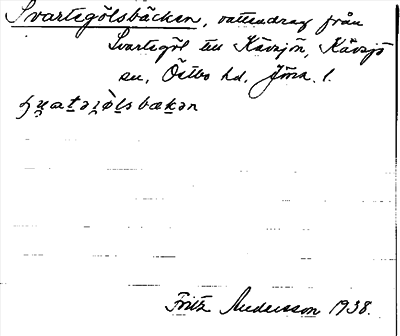 Svartegölsbäcken, vattendrag från
Svartegöl till Kävsjön, Kävsjö
sn, Östbo hd, Jönk. l.
Fritz Andersson 1938.